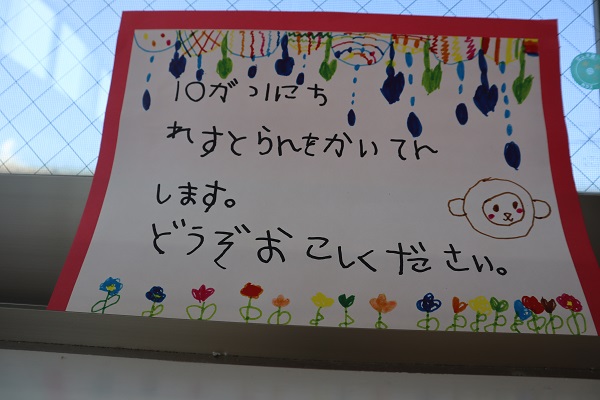 10がつ1にち
れすとらんをかいてん
します。
どうぞおこしください。